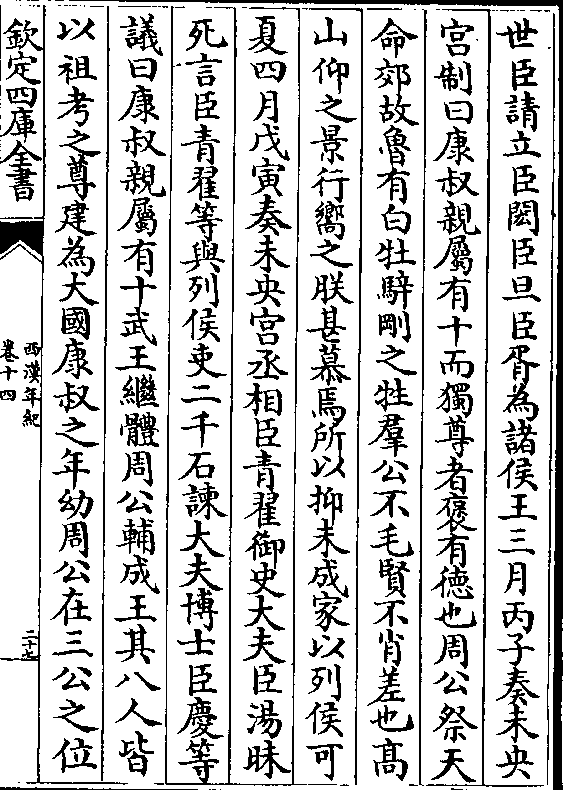 世臣請立臣閎臣旦臣胥為諸侯王三月丙子奏未央
宫制曰康叔親屬有十而獨尊者褒有德也周公祭天
命郊故魯有白牡騂剛之牲羣公不毛賢不肖差也髙
山仰之景行嚮之朕甚慕焉所以抑未成家以列侯可
夏四月戊寅奏未央宫丞相臣青翟御史大夫臣湯昧
死言臣青翟等與列侯吏二千石諫大夫博士臣慶等
議曰康叔親屬有十武王繼體周公輔成王其八人皆
以祖考之尊建為大國康叔之年幼周公在三公之位
欽定四庫全書
西漢年紀
卷十四